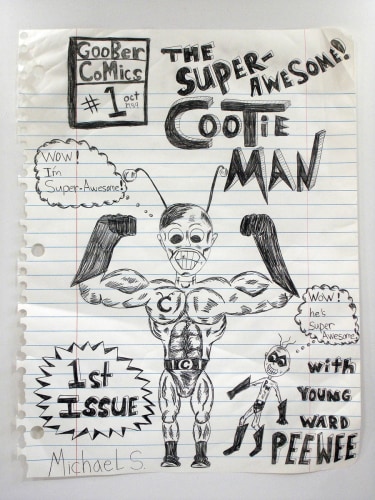 GOOBER
COMICS
#1 oct
1999
THE
SUPER-
AWESOME!
COOTIE
MAN
WOW!
I'm
Super-Awesome!
C
C
WOW!
he's
super
Awesome
1st
ISSUE
with
YOUNG
WARD
PEEWEE
Michael S.